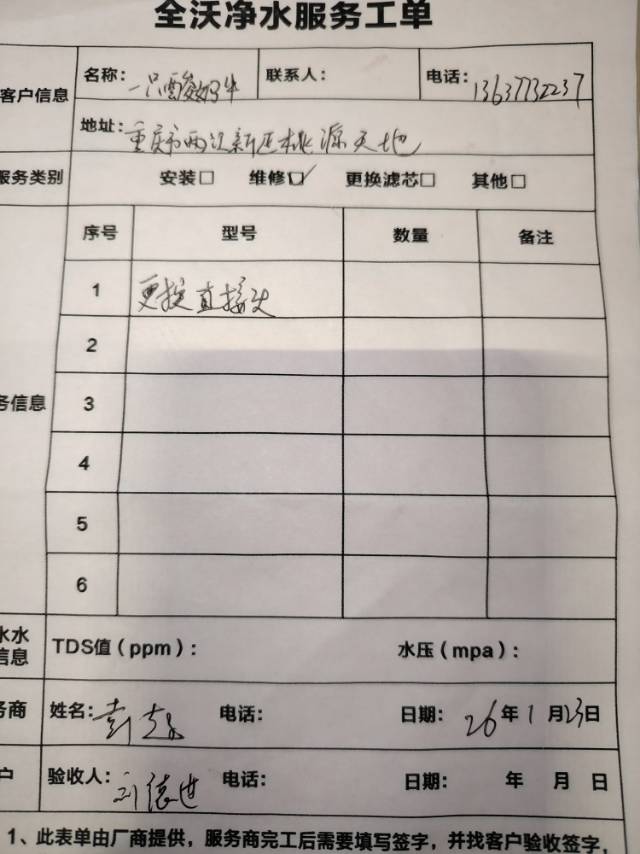 全沃净水服务工单
客户信息
名称：一只酸奶牛 联系人： 电话：13637732237
地址：重庆市两江新区桃源天地
服务类别 安装□ 维修☑ 更换滤芯□ 其他□
序号 型号 数量 备注
1 更换直接头
2
务信息 3
4
5
6
水水
信息 TDS值（ppm）： 水压（mpa）：
务商 姓名：彭 电话： 日期：26年1月23日
户 验收人：刘德 电话： 日期： 年 月 日
1、此表单由厂商提供，服务商完工后需要填写签字，并找客户验收签字，